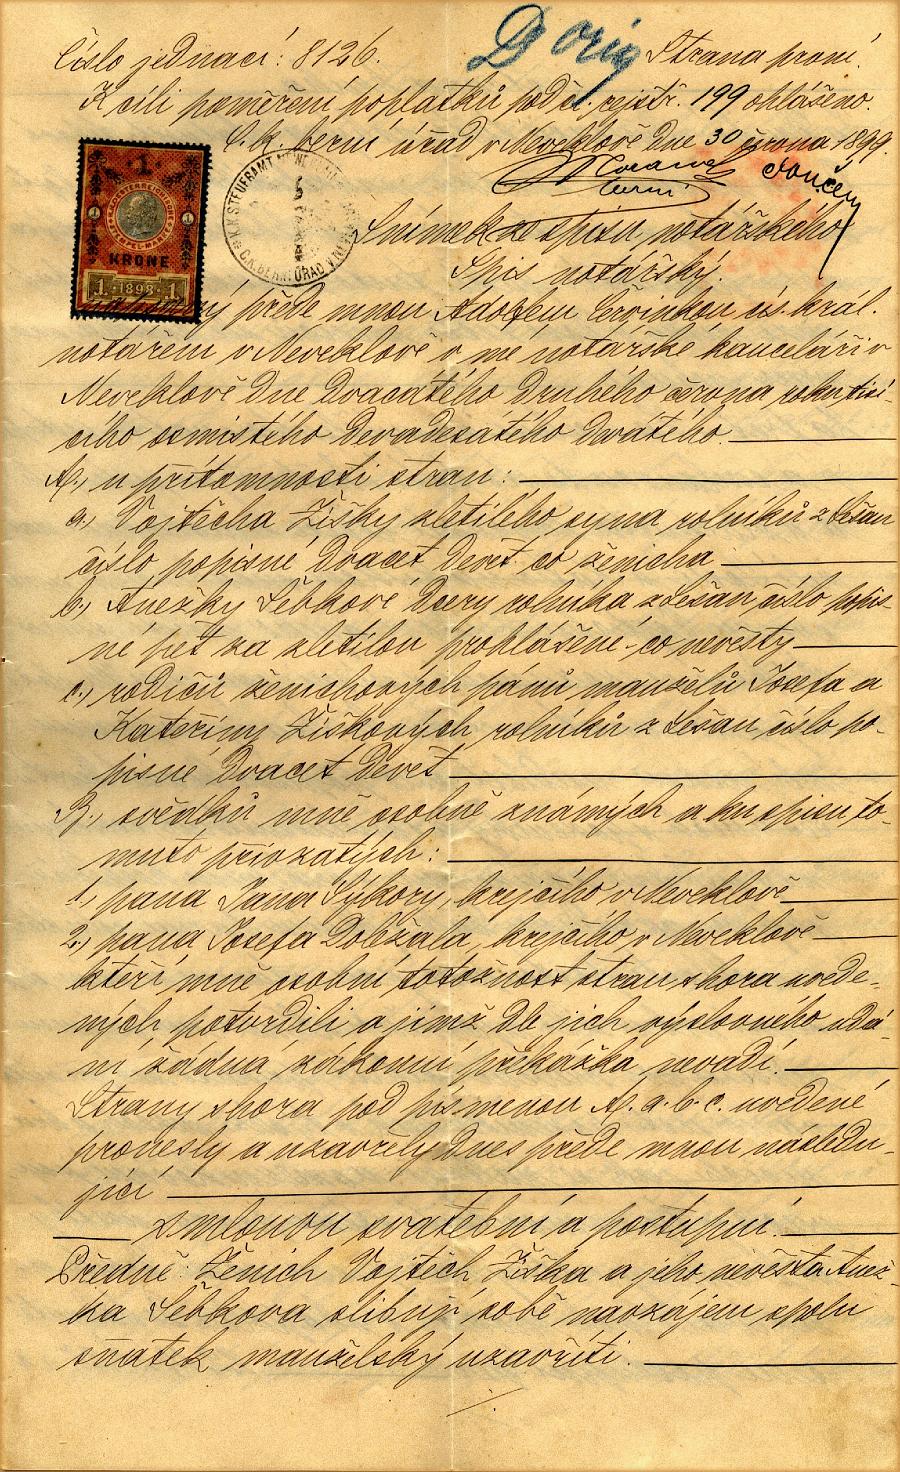 Číslo jednací: 8126.
Strana první.
K cíli poměření poplatků pod čl. rejstř. 199 ohlášeno.
C. k. berní úřad v Neveklově dne 30 června 1899.
Souček
berní
1
KRONE
1 1898 1
K.K. STEUERAMT
C.K. BERNÍ ÚŘAD
Snímek ze spisu notářského
Spis notářský.
přede mnou Adolfem Červinkou cís. král.
notářem v Neveklově v mé notářské kanceláři v
Neveklově dne dvacátého druhého června roku tisí-
cího osmistého devadesátého devátého.
A., u přítomnosti stran:
a., Vojtěcha Žížky zletilého syna rolníků z Lešan
číslo popisné dvacet devět co ženicha
b., Anežky Šebkové dcery rolníka z Lešan číslo popis-
né pět za zletilou prohlášené co nevěsty
c., rodičů ženichových pánů manželů Josefa a
Kateřiny Žížkových rolníků z Lešan číslo po-
pisné dvacet devět
B., svědků mně osobně známých a ku spisu to-
muto přivzatých:
1., pana Jana Sýkory, krejčího v Neveklově
2., pana Josefa Doležala, krejčího v Neveklově
kteří mně osobní totožnost stran shora uvede-
ných potvrdili a jimž dle jich výslovného udá-
ní žádná zákonní překážka nevadí.
Strany shora pod písmenou A. a. b. c. uvedené
pronesly a uzavřely dnes přede mnou následu-
jící
smlouvu svatební a postupní.
Předně: Ženich Vojtěch Žížka a jeho nevěsta Anež-
ka Šebkova slibují sobě navzájem spolu
sňatek manželský uzavříti.